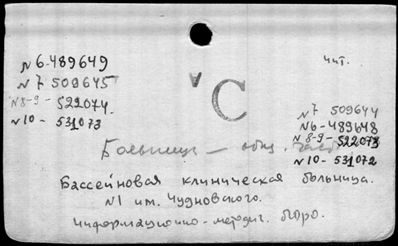 N6-489649
N7 509645
N8-9- 522074
N10- 531073
чит.
C
N7 509644
N6-489648
N8-9- 522073
N10- 531072
Больница - общ. часть
Бассейновая клиническая больница.
N1 им. Чудновского.
Информационно-методич. бюро.